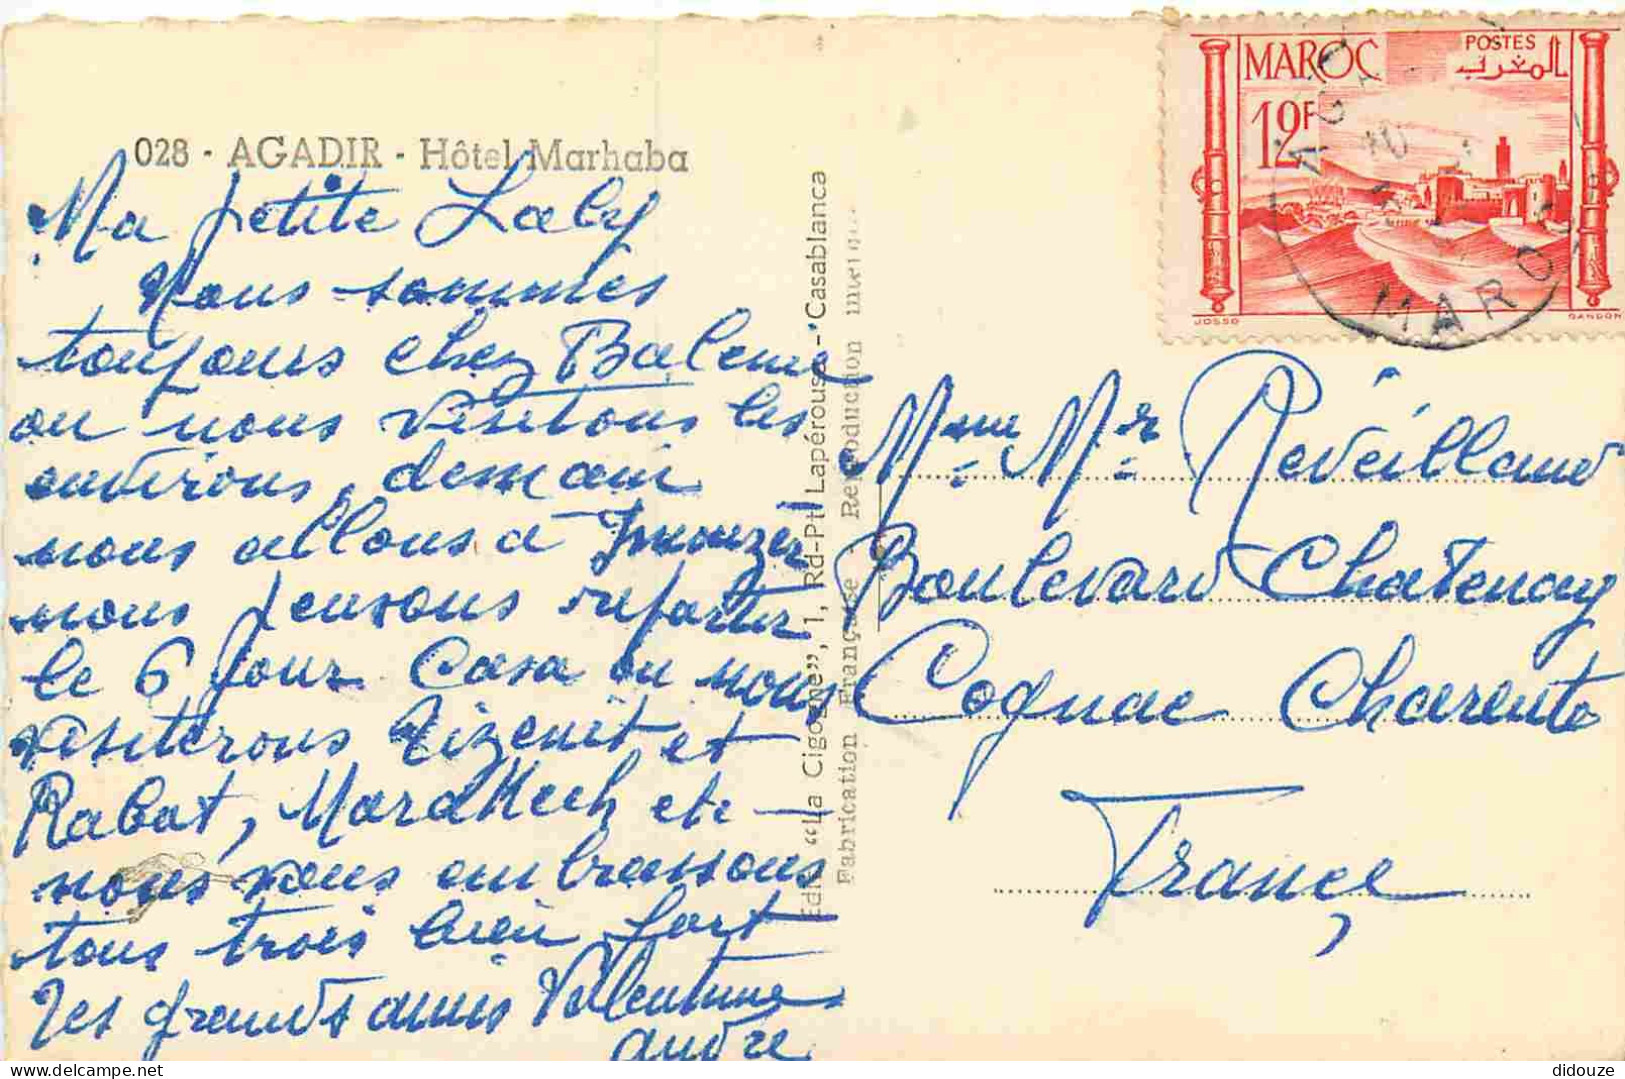 028 - AGADIR - Hôtel Marhaba
Ma petite Laly
Nous sommes
toujours chez Baleme
ou nous visitons les
environs, demain
nous allons à Imouzer
nous pensons repartir
le 6 pour Casa ou nous
visiterons Tizenit et
Rabat, Marakkech etc -
nous vous embrassons
tous trois bien fort
Tes grands amis Valentine
André
Edit. "La Cigogne", 1, Rd-Pt Lapérouse - Casablanca
Fabrication Française Reproduction
MAROC
POSTES
المغرب
12F
JOSSO
GANDON
AGADIR
MAROC
Mme Mr Reveillaud
Boulevard Chatenay
Cognac Charente
France
didouze